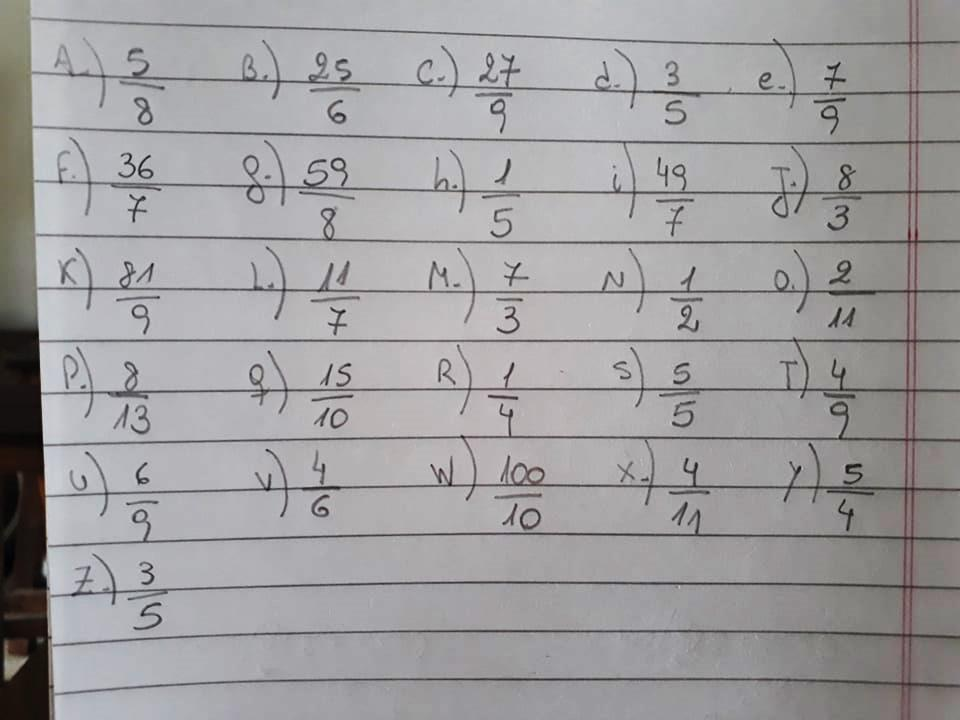 A.) 5/8 B.) 25/6 C.) 27/9 d.) 3/5 e.) 7/9
F.) 36/7 g.) 59/8 h.) 1/5 i) 49/7 J.) 8/3
K) 81/9 L.) 11/7 M.) 7/3 N) 1/2 O.) 2/11
P.) 8/13 q) 15/10 R) 1/4 S) 5/5 T) 4/9
U) 6/9 V) 4/6 W) 100/10 X.) 4/11 Y) 5/4
Z.) 3/5